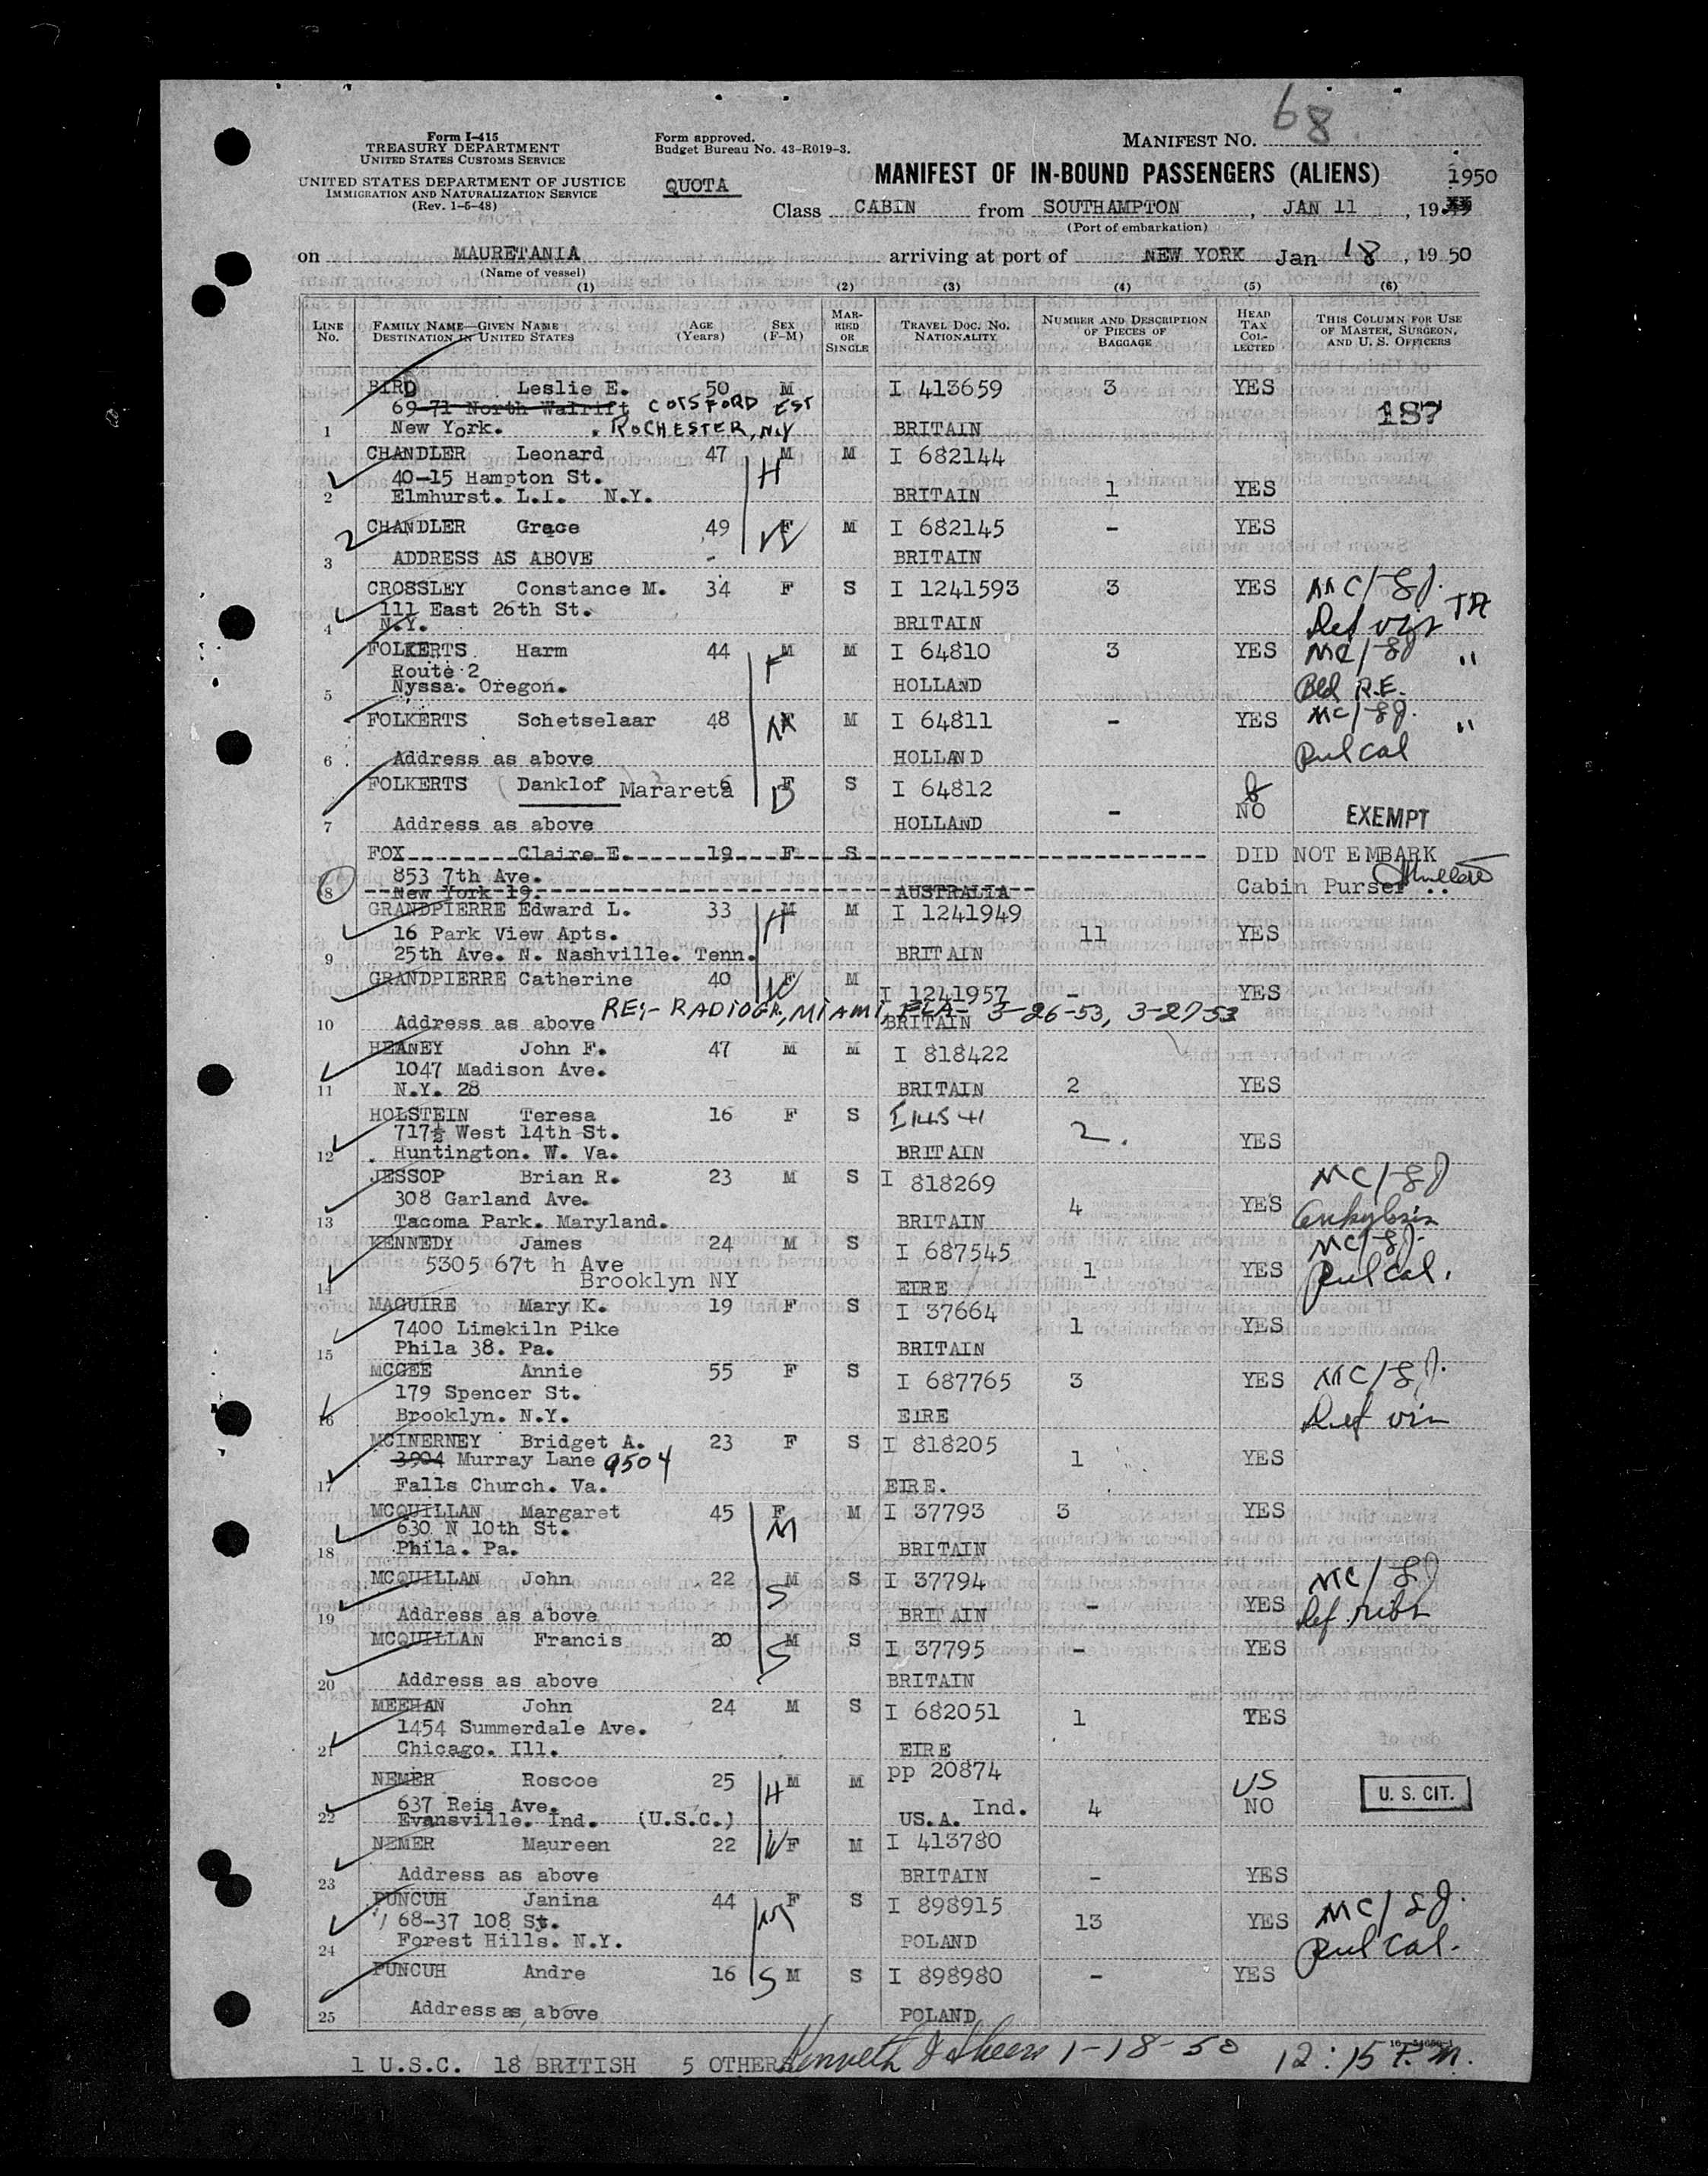 68
Form I-415
TREASURY DEPARTMENT
UNITED STATES CUSTOMS SERVICE
UNITED STATES DEPARTMENT OF JUSTICE
IMMIGRATION AND NATURALIZATION SERVICE
(Rev. 1-5-48)
Form approved.
Budget Bureau No. 43-R019-3.
QUOTA
MANIFEST NO.
MANIFEST OF IN-BOUND PASSENGERS (ALIENS)
1950
Class CABIN from SOUTHAMPTON, JAN 11, 19
(Port of embarkation)
on MAURETANIA arriving at port of NEW YORK Jan 18, 1950
(Name of vessel)
(1) (2) (3) (4) (5) (6)
LINE No. FAMILY NAME—GIVEN NAME DESTINATION IN UNITED STATES AGE (Years) SEX (F-M) MARRIED OR SINGLE TRAVEL DOC. NO. NATIONALITY NUMBER AND DESCRIPTION OF PIECES OF BAGGAGE HEAD TAX COLLECTED THIS COLUMN FOR USE OF MASTER, SURGEON, AND U. S. OFFICERS
BIRD Leslie E. 50 M I 413659 3 YES
69-71 North Walrift COTSFORD EST 187
1 New York. ROCHESTER, N.Y BRITAIN
CHANDLER Leonard 47 M M I 682144
40-15 Hampton St. H
2 Elmhurst. L.I. N.Y. BRITAIN 1 YES
2 CHANDLER Grace 49 F M I 682145 - YES
W
3 ADDRESS AS ABOVE - BRITAIN
CROSSLEY Constance M. 34 F S I 1241593 3 YES MC/-8J.
111 East 26th St. TA
4 N.Y. BRITAIN Def vis
FOLKERTS Harm 44 M M I 64810 3 YES MC/-8J "
Route 2 F
5 Nyssa. Oregon. HOLLAND Bld P.E.
FOLKERTS Schetselaar 48 F M I 64811 - YES MC/-8J. "
M
6 Address as above HOLLAND Pul cal
FOLKERTS (Danklof Marareta 6 F S I 64812
D NO
7 Address as above HOLLAND - EXEMPT
FOX Claire E. 19 F S DID NOT EMBARK
853 7th Ave.
8 New York 19. AUSTRALIA Cabin Purser
GRANDPIERRE Edward L. 33 M M I 1241949
16 Park View Apts. H 11 YES
9 25th Ave. N. Nashville. Tenn. BRITAIN
GRANDPIERRE Catherine 40 F M I 1241957 - YES
W
RE:- RADIOGR, MIAMI, FLA- 3-26-53, 3-27-53
10 Address as above BRITAIN
HEANEY John F. 47 M M I 818422
1047 Madison Ave.
11 N.Y. 28 BRITAIN 2 YES
HOLSTEIN Teresa 16 F S
717½ West 14th St. 2. YES
12 Huntington. W. Va. BRITAIN
JESSOP Brian R. 23 M S I 818269 MC/-8J
308 Garland Ave. 4 YES
13 Tacoma Park. Maryland. BRITAIN ankylosis
KENNEDY James 24 M S I 687545 MC/-8J.
5305 67t h Ave 1 YES Pul cal.
14 Brooklyn NY EIRE
MAGUIRE Mary K. 19 F S I 37664
7400 Limekiln Pike 1 YES
15 Phila 38. Pa. BRITAIN
MCGEE Annie 55 F S I 687765 3 YES MC/-8J.
179 Spencer St.
16 Brooklyn. N.Y. EIRE Def vis
MCINERNEY Bridget A. 23 F S I 818205
3904 Murray Lane 9504 1 YES
17 Falls Church. Va. EIRE.
MCQUILLAN Margaret 45 F M I 37793 3 YES
630 N 10th St. M
18 Phila. Pa. BRITAIN
MCQUILLAN John 22 M S I 37794 MC/-8J
S - YES
19 Address as above BRITAIN Def. ribs
MCQUILLAN Francis 20 M S I 37795 - YES
S
20 Address as above BRITAIN
MEEHAN John 24 M S I 682051 1 YES
1454 Summerdale Ave.
21 Chicago. Ill. EIRE
NEMER Roscoe 25 M M pp 20874 US
H
637 Reis Ave. Ind. 4 NO U. S. CIT.
22 Evansville. Ind. (U.S.C.) US.A.
NEMER Maureen 22 F M I 413780
W
23 Address as above BRITAIN - YES
PUNCUH Janina 44 F S I 898915 MC/8J.
68-37 108 St. M 13 YES
24 Forest Hills. N.Y. POLAND Pul cal.
PUNCUH Andre 16 M S I 898980 - YES
S
25 Address as above POLAND
1 U.S.C. 18 BRITISH 5 OTHERS Kenneth J Sheers 1-18-50 12:15 P.M.